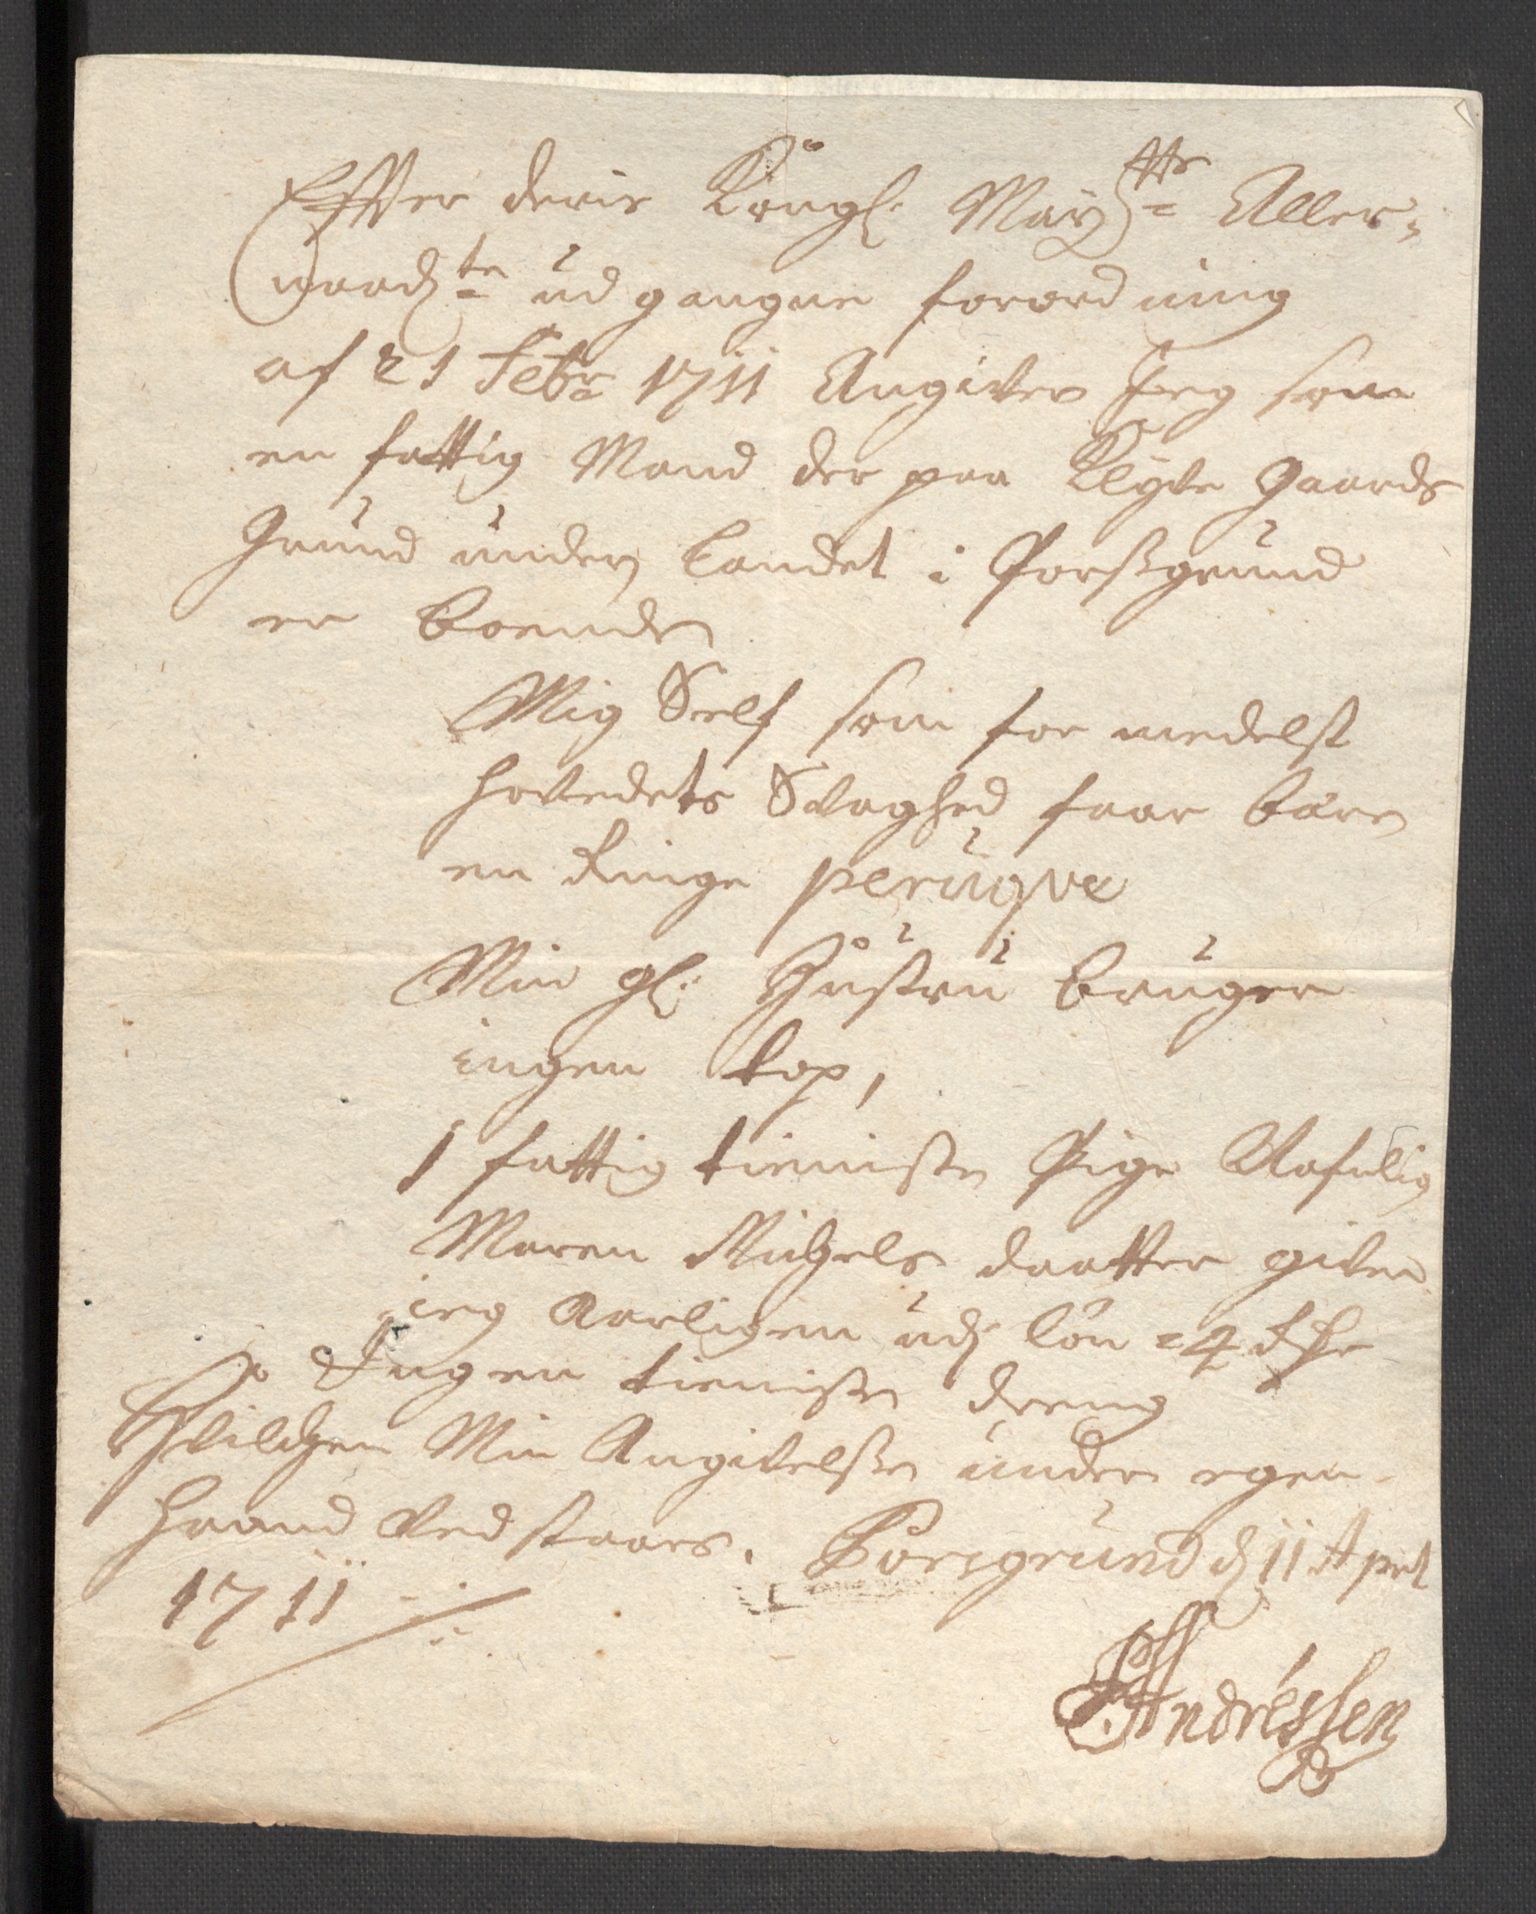 Effter deris Kongl. May:tts Aller-
naadste udgangne forordning
af 21 Febr 1711 Angiver Jeg som
en fattig Mand der paa Klyve Gaards
Grund under Landet i Porssgrund
er boende
Mig Self som for medelst
hovedets Svaghed faar bære
en Ringe perugve
Min gl: Hustru bruger
ingen top,
1 fattig tieniste Pige Nafnlig
Maren Michels daatter giver
jeg Aarligen udj lön = 4 Rdr
Ingen tieniste dreng
Hvilchen Min Angivelsse under egen
haand Ved staaes. Porsgrund d 11 Apri
1711
Andréssen